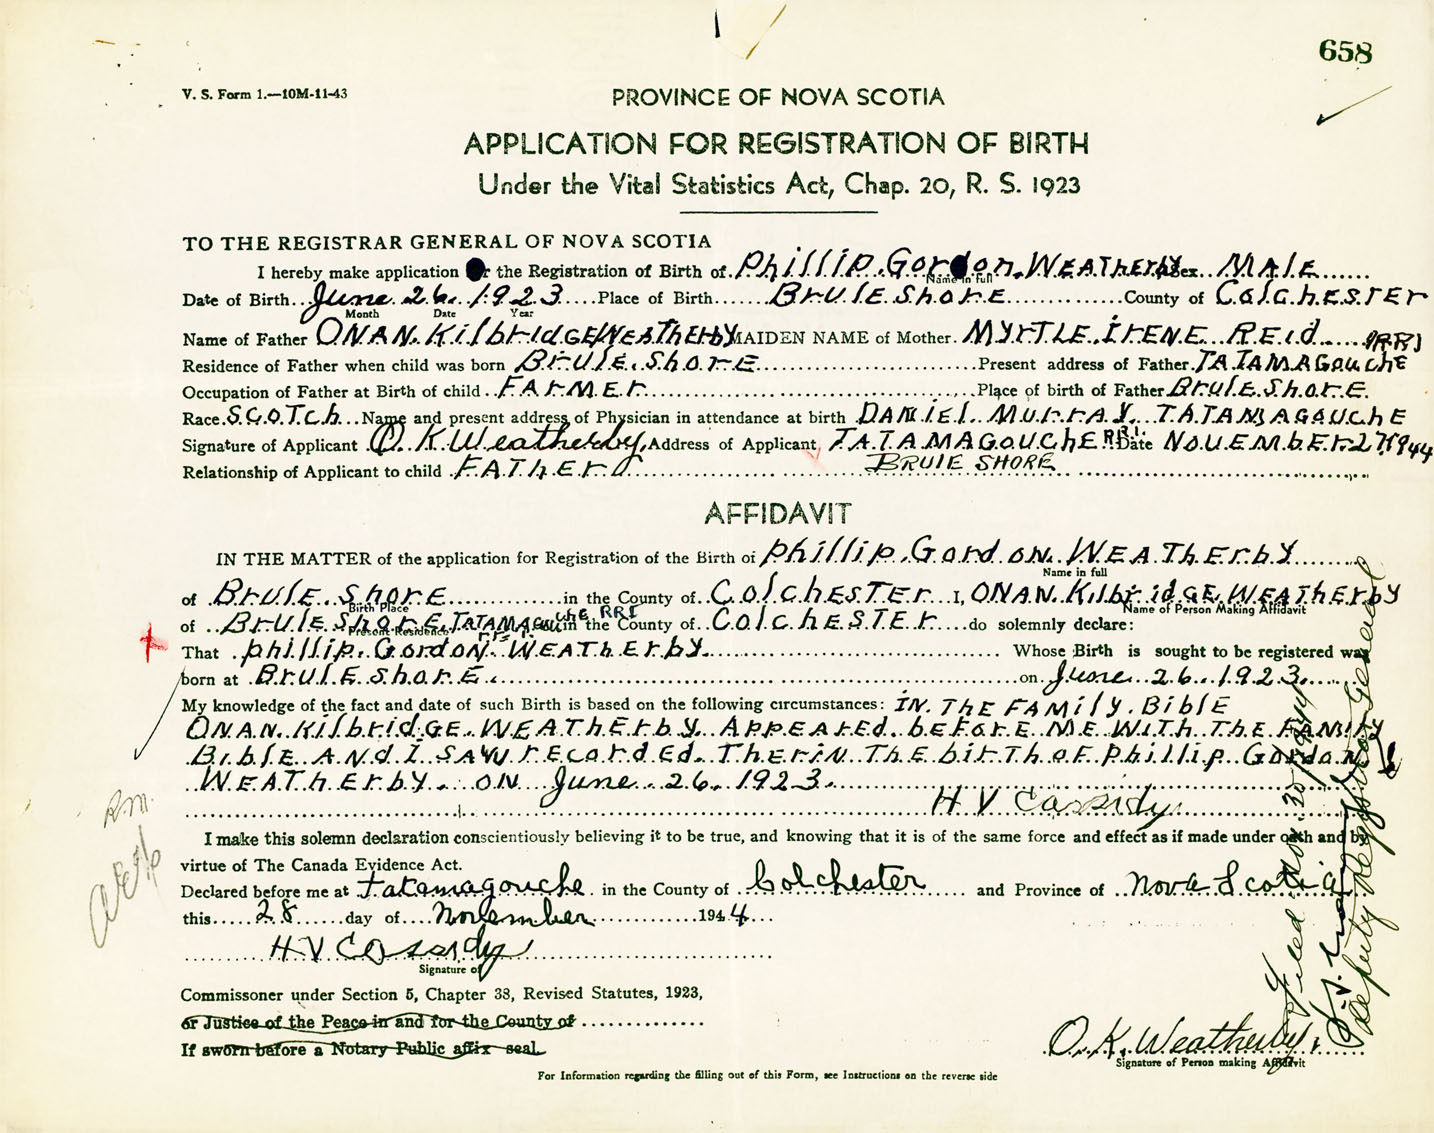 658
V. S. Form 1.—10M-11-43
PROVINCE OF NOVA SCOTIA
APPLICATION FOR REGISTRATION OF BIRTH
Under the Vital Statistics Act, Chap. 20, R. S. 1923
TO THE REGISTRAR GENERAL OF NOVA SCOTIA
I hereby make application for the Registration of Birth of Phillip Gordon WEATherby Sex MALE
Name in full
Date of Birth June 26 1923 Place of Birth BrulE ShorE County of ColchESTEr
Month Date Year
Name of Father ONAN KilbridGE WEATherby MAIDEN NAME of Mother MYRTLE IRENE REid
Residence of Father when child was born BrulE ShorE Present address of Father TATAMAGouchE RR1
Occupation of Father at Birth of child FArMEr Place of birth of Father BrulE ShorE
Race SCOTch Name and present address of Physician in attendance at birth DANiEl MurrAy TATAMAGouchE
Signature of Applicant O. K Weatherby Address of Applicant TATAMAGouchE RR1 Date NovEMbEr 27 1944
Relationship of Applicant to child FAThEr BRULE SHORE
AFFIDAVIT
IN THE MATTER of the application for Registration of the Birth of Phillip Gordon WEATherby
Name in full
of BrulE ShorE in the County of ColchESTEr I, ONAN KilbridGE WEATherby
Birth Place Name of Person Making Affidavit
of BrulE ShorE TATAMAGouche RR1 in the County of ColchESTEr do solemnly declare:
Present Residence
That Phillip Gordon WEATherby Whose Birth is sought to be registered was
born at BrulE ShorE on June 26 1923
My knowledge of the fact and date of such Birth is based on the following circumstances: IN THE FAMily BiblE
ONAN KilbridGE WEATherby AppEArEd bEForE ME WITH THE FAMily
BiblE ANd I SAW rEcordEd ThErIN ThE birTh oF Phillip Gordon
WEATherby ON June 26 1923
H V Cassidy
I make this solemn declaration conscientiously believing it to be true, and knowing that it is of the same force and effect as if made under oath and by
virtue of The Canada Evidence Act.
Declared before me at Tatamagouche in the County of Colchester and Province of Nova Scotia
this 28 day of November 1944
H V Cassidy
Signature of
Commissoner under Section 5, Chapter 38, Revised Statutes, 1923,
or Justice of the Peace in and for the County of
If sworn before a Notary Public affix seal
O. K. Weatherby
Signature of Person making Affidavit
For Information regarding the filling out of this Form, see Instructions on the reverse side
Filed Nov. 30/1944
Deputy Registrar General